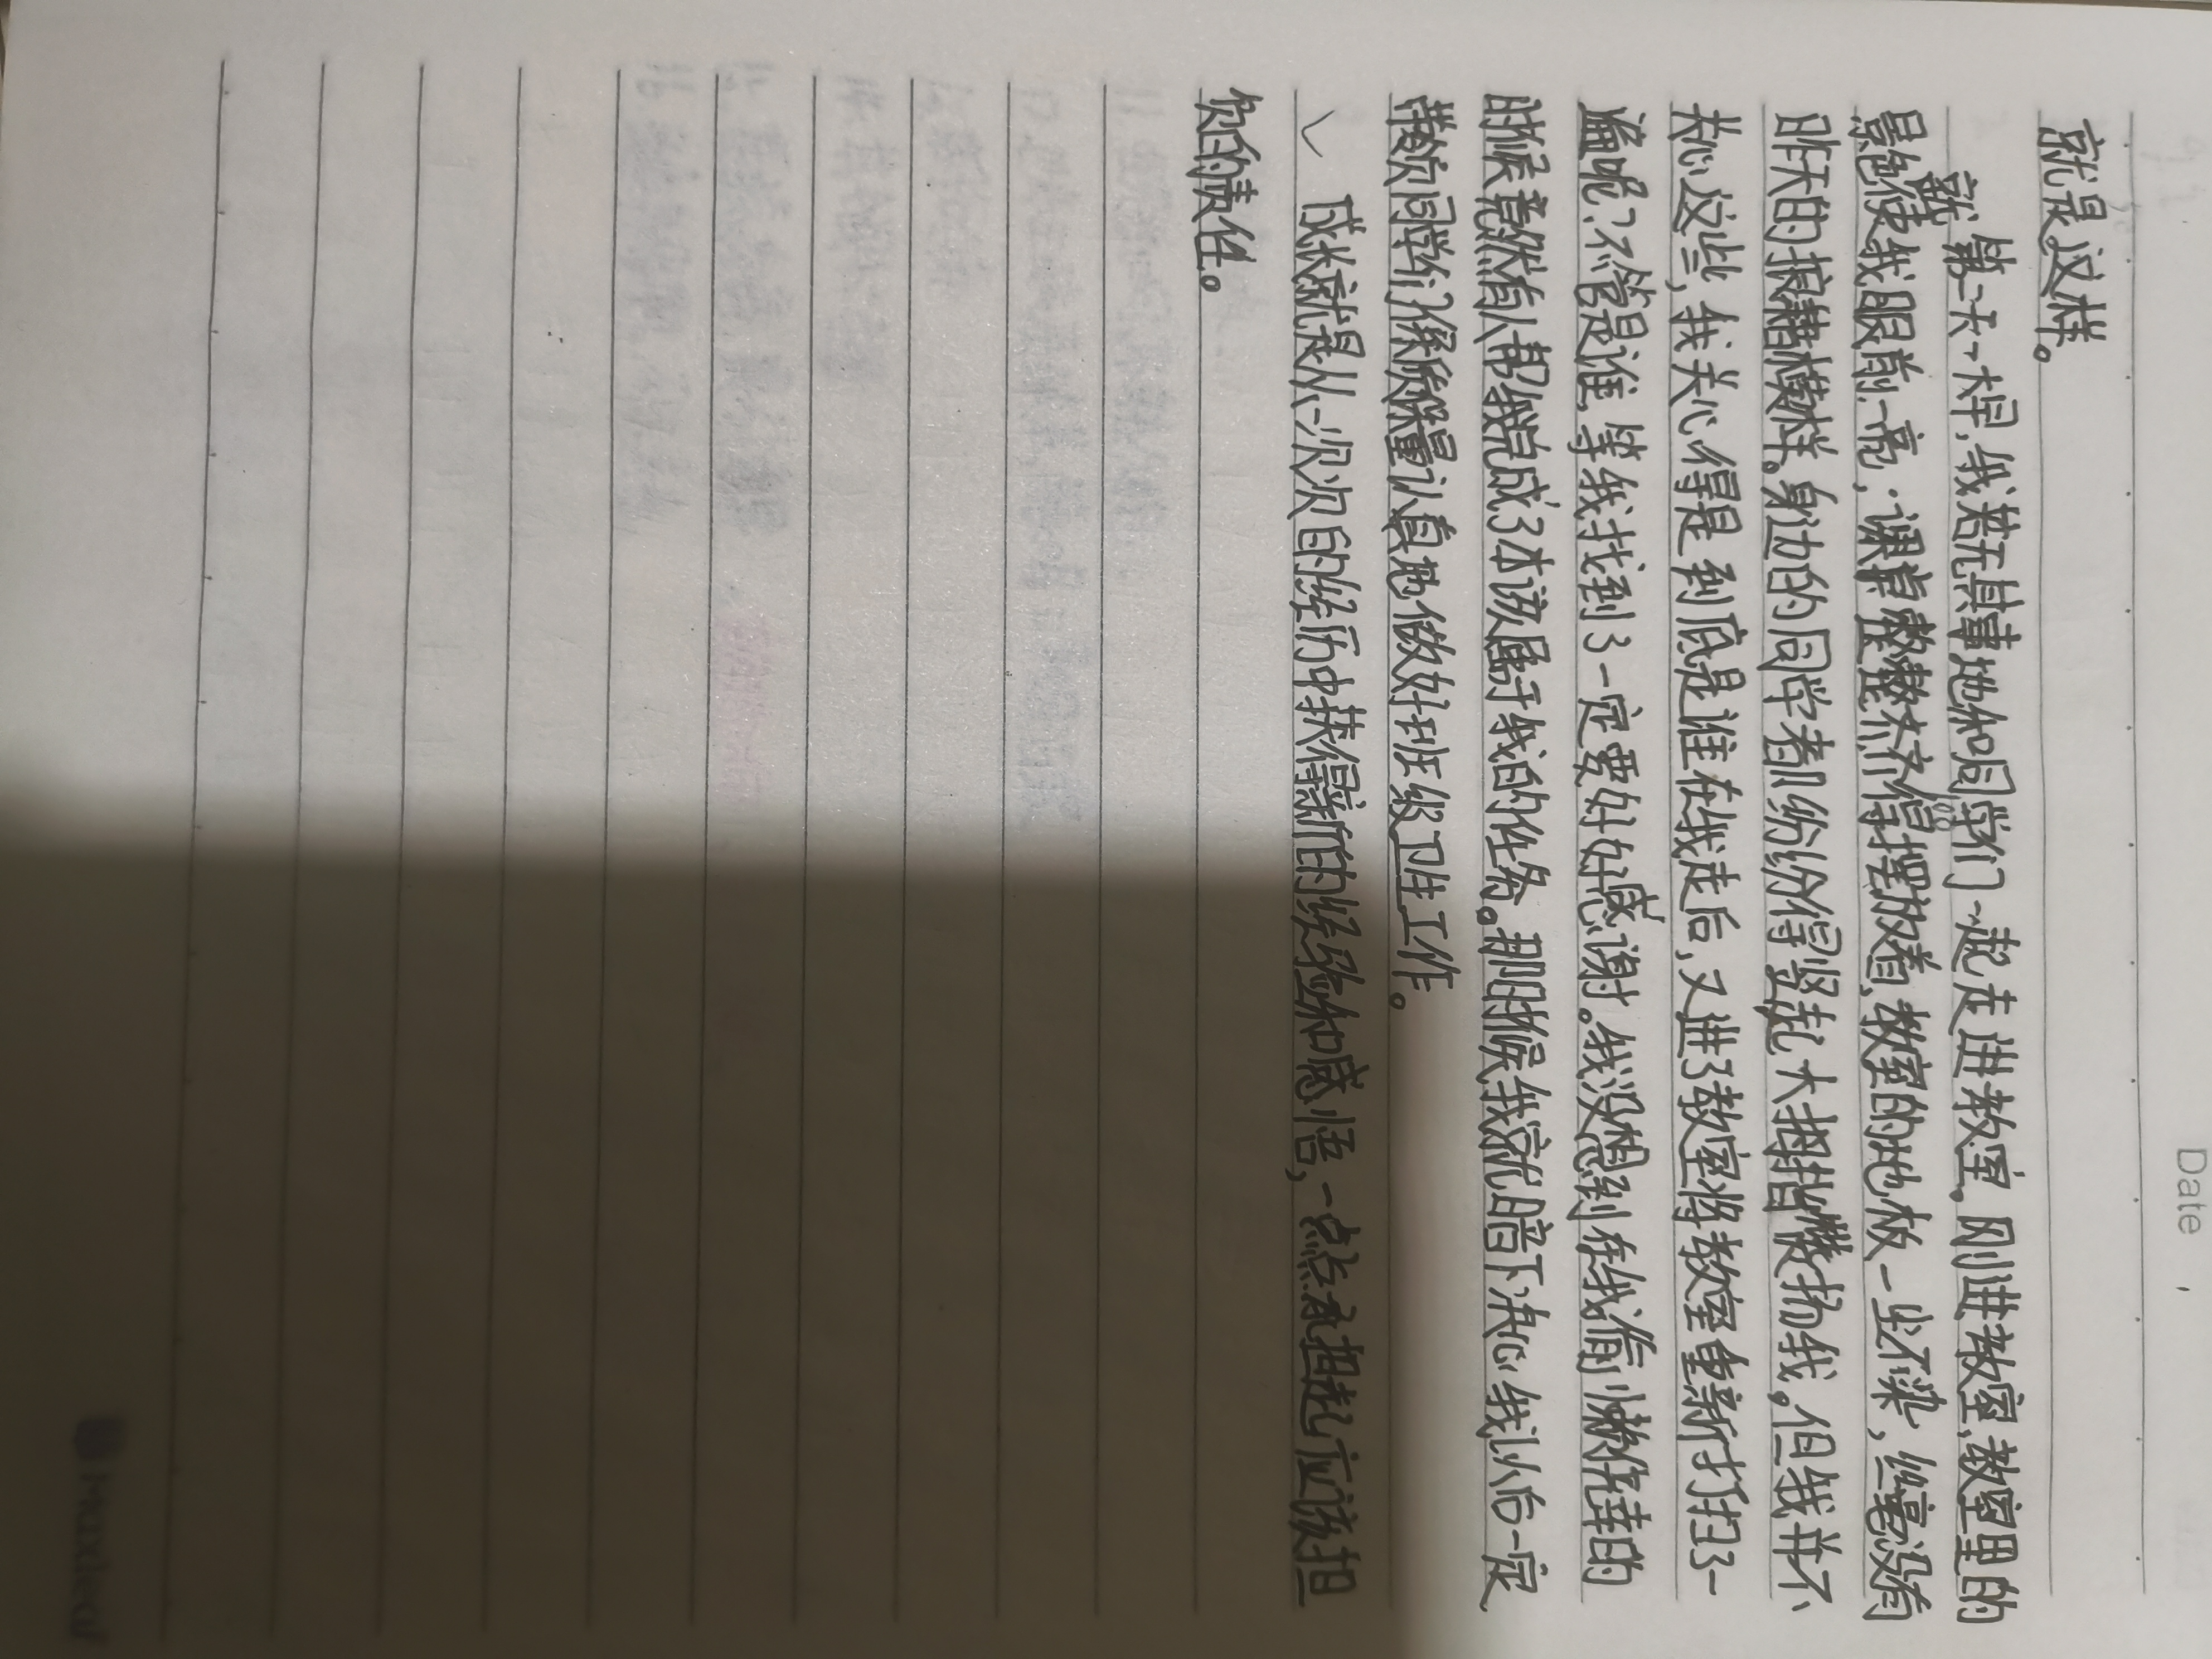 Date
就是这样。
第二天一大早,我若无其事地和同学们一起走进教室。刚进教室,教室里的
景色就使我眼前一亮,课桌整整齐齐得摆放着,教室的地板一尘不染,丝毫没有
昨天的狼藉模样。身边的同学都纷纷得竖起大拇指表扬我。但我并不
关心这些,我关心得是到底是谁在我走后,又进了教室将教室重新打扫了一
遍呢?不管是谁,等我找到了一定要好好感谢。我没想到在我偷懒侥幸的
时候竟然有人帮我完成了本该属于我的任务。那时候我就暗下决心我以后一定
带领同学们保质保量认真地做好班级卫生工作。
成长就是从一次次的经历中获得新的经验和感悟,一点点承担起应该担
负的责任。